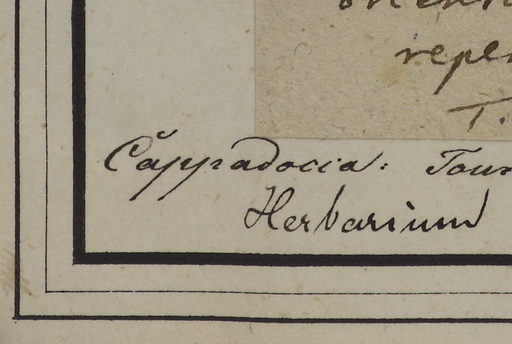 repe
T.
Cappadocia: Tour
Herbarium